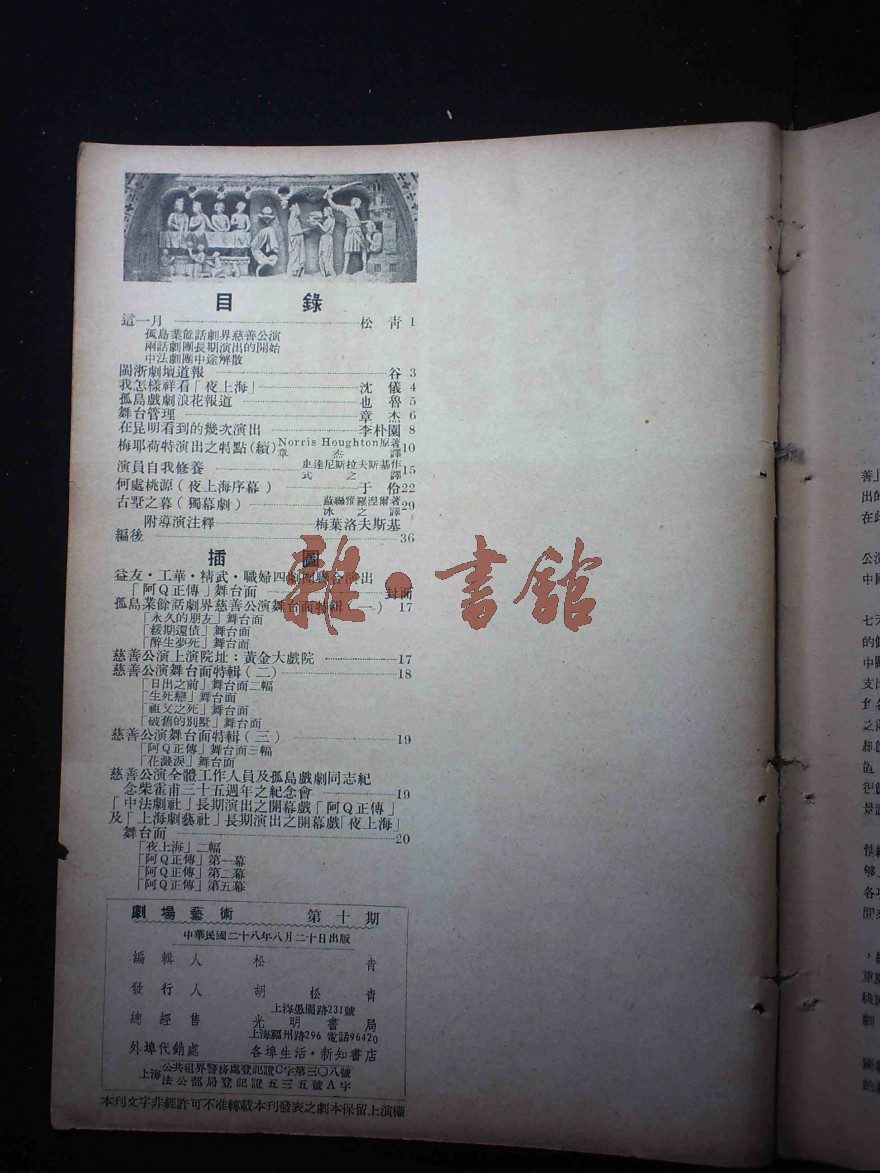 目錄
這一月 松青 1
孤島業餘話劇界慈善公演
兩話劇團長期演出的開始
中法劇團中途解散
閩浙劇壇道報 谷 3
我怎樣看「夜上海」 沈儀 4
孤島戲劇浪花報道 也魯 5
舞台管理 章杰 6
在昆明看到的幾次演出 李朴園 8
梅耶荷特演出之特點(續) Norris Houghton原著 章杰譯 10
演員自我修養 史達尼斯拉夫斯基作 式之譯 15
何處桃源(夜上海序幕) 于伶 22
古墅之幕(獨幕劇) 冰之譯 29
附導演注釋 梅葉洛夫斯基
編後 36
插圖
益友・工華・精武・職婦四劇團聯合演出
「阿Q正傳」舞台面 封面
孤島業餘話劇界慈善公演舞台面特輯(一) 17
「永久的朋友」舞台面
「緩期還債」舞台面
「醉生夢死」舞台面
慈善公演上演院址：黃金大戲院 17
慈善公演舞台面特輯(二) 18
「日出之前」舞台面二幅
「生死戀」舞台面
「祖父之死」舞台面
「破舊的別墅」舞台面
慈善公演舞台面特輯(三) 19
「阿Q正傳」舞台面三幅
「花濺淚」舞台面
慈善公演全體工作人員及孤島戲劇同志紀
念柴霍甫三十五週年之紀念會 19
「中法劇社」長期演出之開幕戲「阿Q正傳」
及「上海劇藝社」長期演出之開幕戲「夜上海」
舞台面 20
「夜上海」二幅
「阿Q正傳」第一幕
「阿Q正傳」第二幕
「阿Q正傳」第五幕
劇場藝術 第十期
中華民國二十八年八月二十日出版
編輯人 松青
發行人 胡松青
上海愚園路231號
總經售 光明書局
上海福州路296 電話96420
外埠代銷處 各埠生活・新知書店
上海公共租界警務處登記證C字第三〇八號
法公部局登記證五三五號A字
本刊文字非經許可不准轉載本刊發表之劇本保留上演權
雅・書館